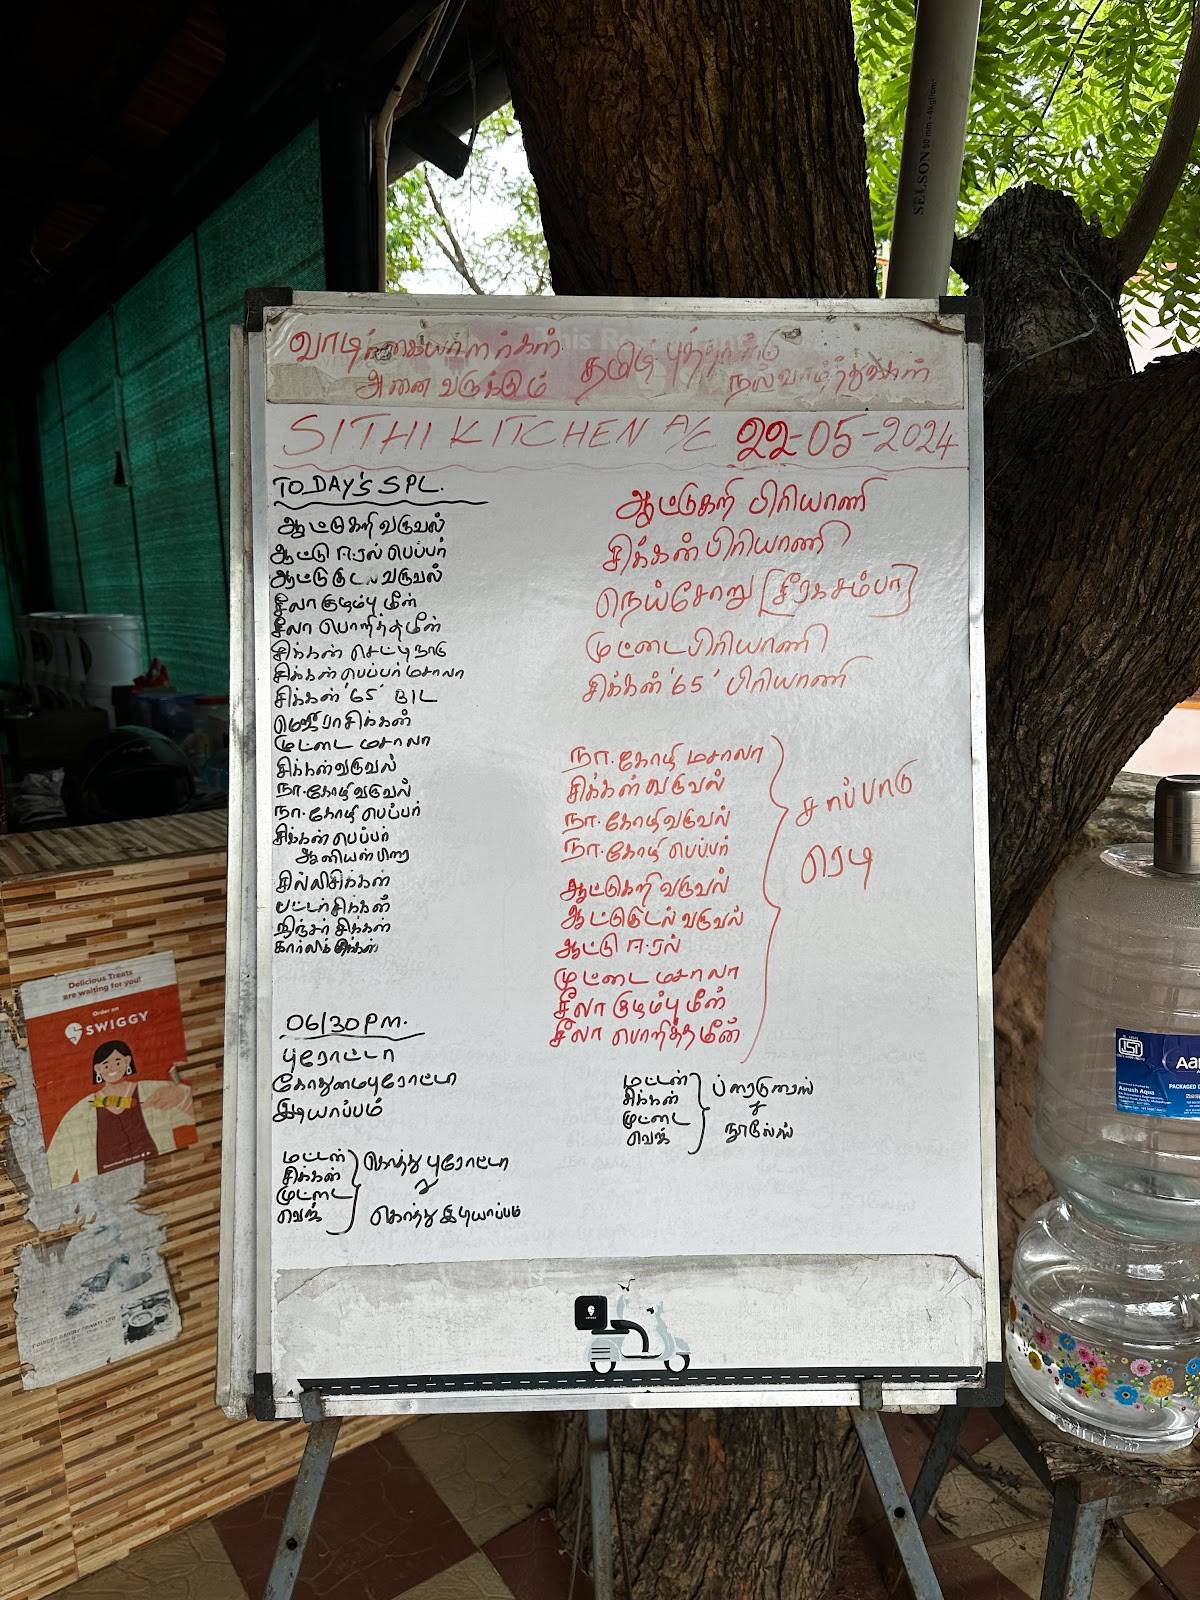 வாடிக்கையாளர்கள் தமிழ் புத்தாண்டு
அனைவருக்கும் நல்வாழ்த்துக்கள்
SITHI KITCHEN A/C 22-05-2024
TODAY'S SPL.
ஆட்டுகறி வருவல்
ஆட்டு ஈரல் பெப்பர்
ஆட்டு குடல் வருவல்
சீலா குழம்பு மீன்
சீலா பொறித்த மீன்
சிக்கன் செட்டிநாடு
சிக்கன் பெப்பர் மசாலா
சிக்கன் '65' B/L
சிக்கன்
முட்டை மசாலா
சிக்கன் வருவல்
நா.கோழி வருவல்
நா.கோழி பெப்பர்
சிக்கன் பெப்பர்
ஆனியன் பிறை
சில்லி சிக்கன்
பட்டர் சிக்கன்
ஜிஞ்சர் சிக்கன்
கார்லிக் சிக்கன்
06/30 PM.
புரோட்டா
கோதுமை புரோட்டா
இடியாப்பம்
மட்டன்
சிக்கன்
முட்டை
வெஜ்
கொத்து புரோட்டா
கொத்து இடியாப்பம்
ஆட்டுகறி பிரியாணி
சிக்கன் பிரியாணி
நெய்சோறு [சீரகசம்பா]
முட்டை பிரியாணி
சிக்கன் '65' பிரியாணி
நா.கோழி மசாலா
சிக்கன் வருவல்
நா.கோழி வருவல்
நா.கோழி பெப்பர்
ஆட்டுகறி வருவல்
ஆட்டுகுடல் வருவல்
ஆட்டு ஈரல்
முட்டை மசாலா
சீலா குழம்பு மீன்
சீலா பொறித்த மீன்
சாப்பாடு
ரெடி
மட்டன்
சிக்கன்
முட்டை
வெஜ்
ப்ரைடுரைஸ்
நூடுல்ஸ்
Delicious Treats
are waiting for you!
Order on
SWIGGY
SELSON 90 mm - 4kgf/cm²
Aarush Aqua
PACKAGED D